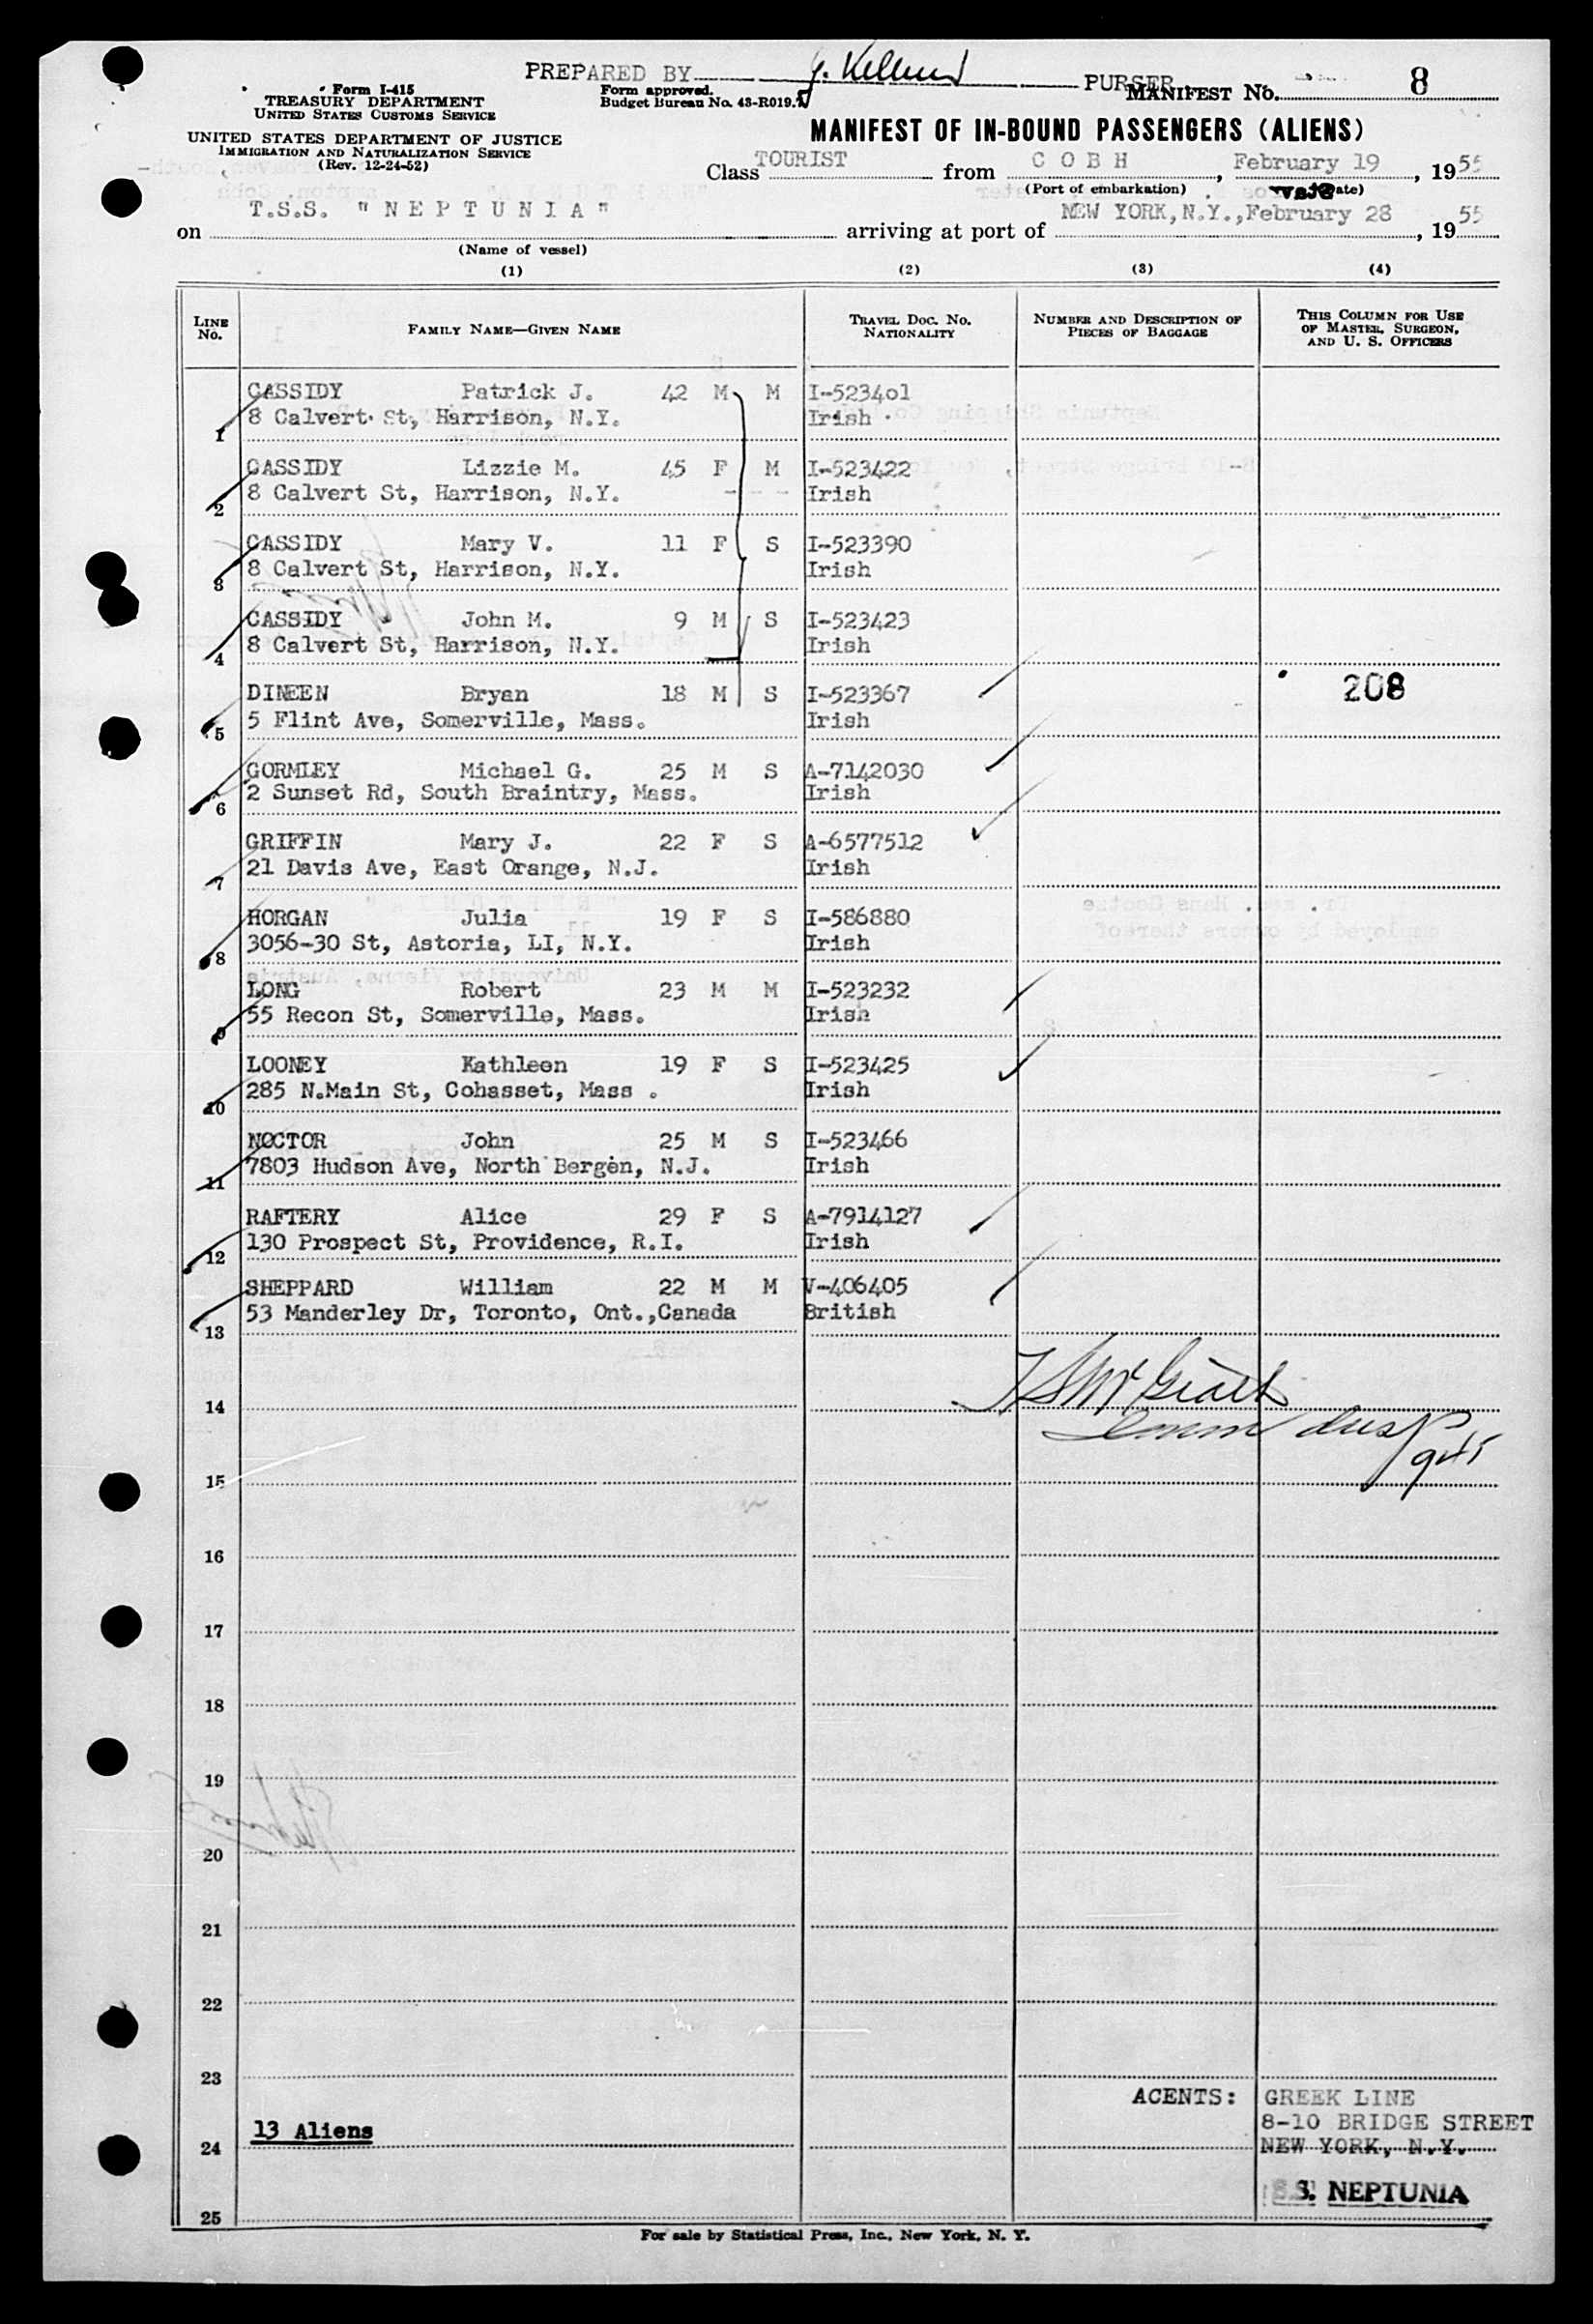 PREPARED BY PURSER
Form I-415
TREASURY DEPARTMENT
UNITED STATES CUSTOMS SERVICE
UNITED STATES DEPARTMENT OF JUSTICE
IMMIGRATION AND NATURALIZATION SERVICE
(Rev. 12-24-52)
Form approved.
Budget Bureau No. 43-R019.
MANIFEST No. 8
MANIFEST OF IN-BOUND PASSENGERS (ALIENS)
Class TOURIST from C O B H, February 19, 1955
(Port of embarkation) (Date)
on T.S.S. "N E P T U N I A" arriving at port of NEW YORK, N.Y., February 28, 1955
(Name of vessel)
(1) (2) (3) (4)
LINE No. FAMILY NAME—GIVEN NAME TRAVEL DOC. NO. NATIONALITY NUMBER AND DESCRIPTION OF PIECES OF BAGGAGE THIS COLUMN FOR USE OF MASTER, SURGEON, AND U. S. OFFICERS
CASSIDY Patrick J. 42 M M I-523401
1 8 Calvert St, Harrison, N.Y. Irish
CASSIDY Lizzie M. 45 F M I-523422
2 8 Calvert St, Harrison, N.Y. Irish
CASSIDY Mary V. 11 F S I-523390
3 8 Calvert St, Harrison, N.Y. Irish
CASSIDY John M. 9 M S I-523423
4 8 Calvert St, Harrison, N.Y. Irish
DINEEN Bryan 18 M S I-523367 208
5 5 Flint Ave, Somerville, Mass. Irish
GORMLEY Michael G. 25 M S A-7142030
6 2 Sunset Rd, South Braintry, Mass. Irish
GRIFFIN Mary J. 22 F S A-6577512
7 21 Davis Ave, East Orange, N.J. Irish
HORGAN Julia 19 F S I-586880
8 3056-30 St, Astoria, LI, N.Y. Irish
LONG Robert 23 M M I-523232
9 55 Recon St, Somerville, Mass. Irish
LOONEY Kathleen 19 F S I-523425
10 285 N.Main St, Cohasset, Mass . Irish
NOCTOR John 25 M S I-523466
11 7803 Hudson Ave, North Bergen, N.J. Irish
RAFTERY Alice 29 F S A-7914127
12 130 Prospect St, Providence, R.I. Irish
SHEPPARD William 22 M M V-406405
13 53 Manderley Dr, Toronto, Ont.,Canada British
14
15
16
17
18
19
20
21
22
23
AGENTS: GREEK LINE
8-10 BRIDGE STREET
24 13 Aliens NEW YORK, N.Y.
S.S. NEPTUNIA
25
For sale by Statistical Press, Inc., New York, N. Y.